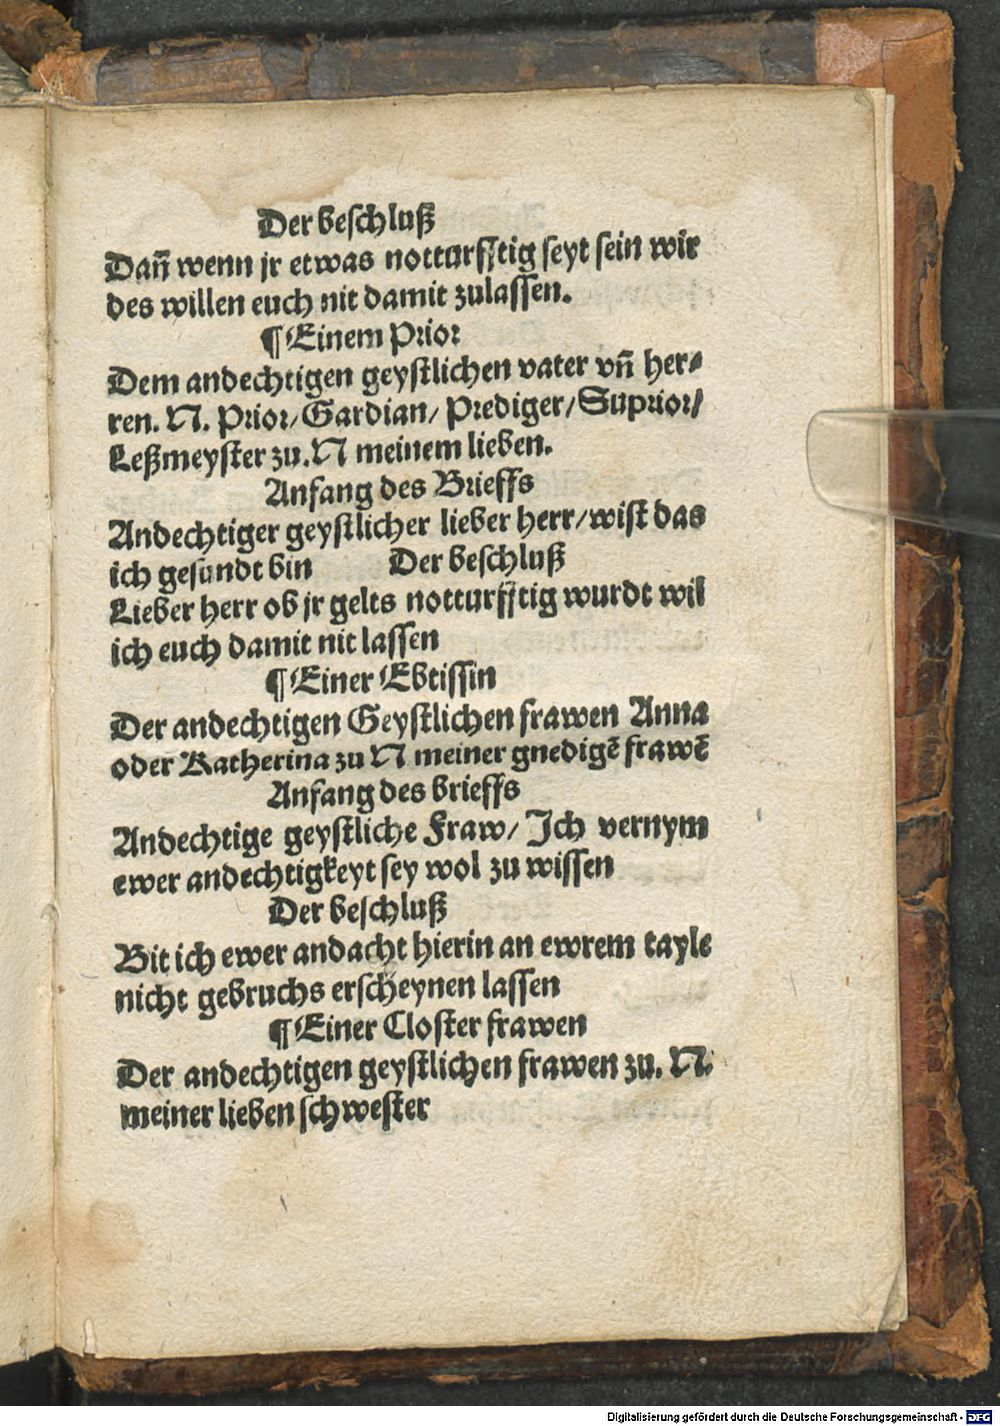 Der beschluß
Dañ wenn jr etwas notturfftig seyt sein wir
des willen euch nit damit zulassen.
¶ Einem Prior
Dem andechtigen geystlichen vater vñ her⸗
ren. N. Prior/ Gardian/ Prediger/ Suprior/
Leßmeyster zu. N meinem lieben.
Anfang des Brieffs
Andechtiger geystlicher lieber herr/ wist das
ich gesundt bin Der beschluß
Lieber herr ob jr gelts notturfftig wurdt wil
ich euch damit nit lassen
¶ Einer Ebtissin
Der andechtigen Geystlichen frawen Anna
oder Katherina zu N meiner gnedigē frawē
Anfang des brieffs
Andechtige geystliche Fraw/ Ich vernym
ewer andechtigkeyt sey wol zu wissen
Der beschluß
Bit ich ewer andacht hierin an ewrem tayle
nicht gebruchs erscheynen lassen
¶ Einer Closter frawen
Der andechtigen geystlichen frawen zu. N.
meiner lieben schwester
Digitalisierung gefördert durch die Deutsche Forschungsgemeinschaft - DFG